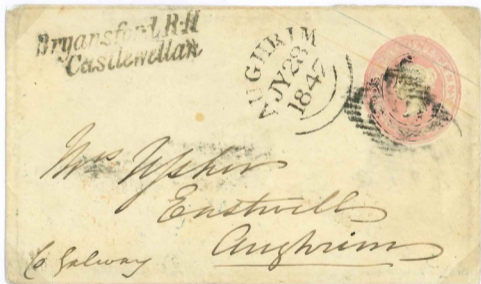 Bryansford R·H
Castlewellan
AUGHRIM
JY 28
1847
Mrs Usher
Eastwell
Aughrim
Co Galway